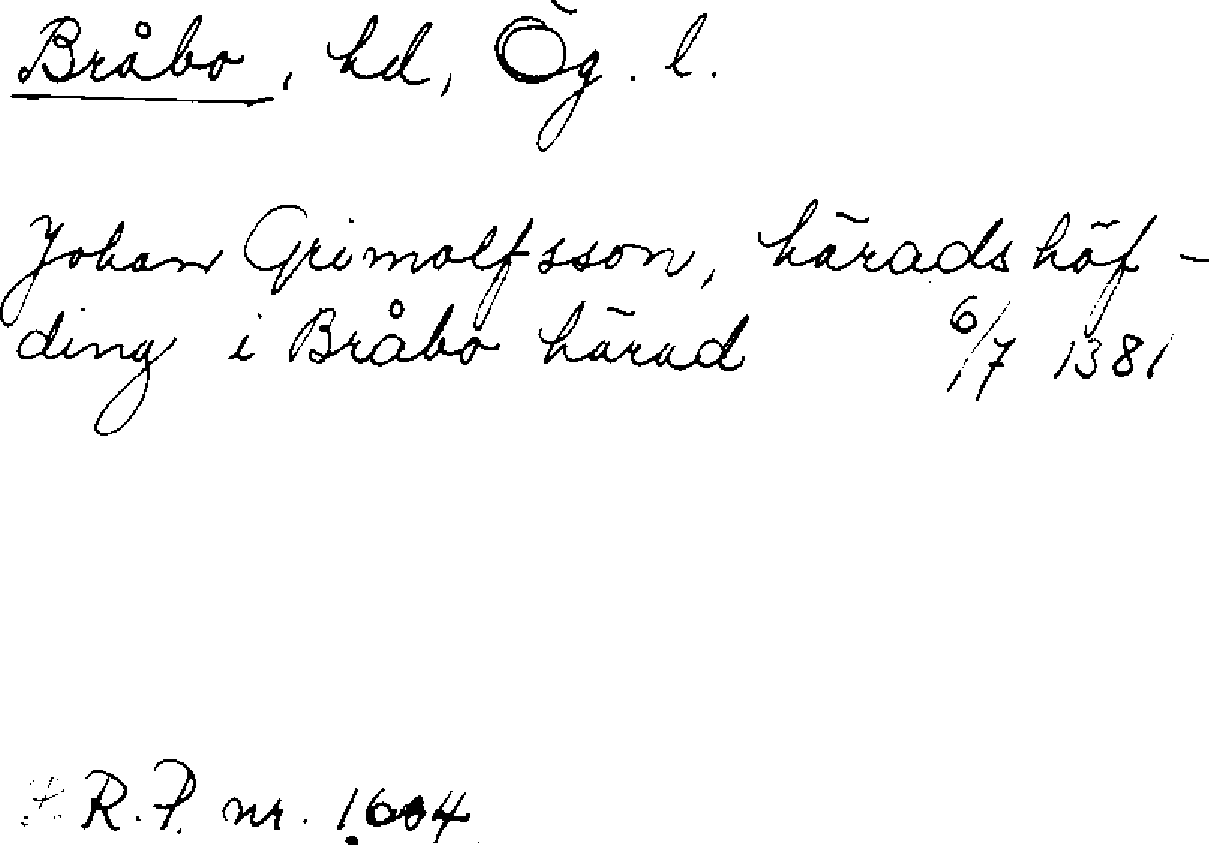 Bråbo, hd, Ög. l.
Johan Grimolfsson, häradshöf-
ding i Bråbo härad 6/7 1381
R. P. nr. 1604